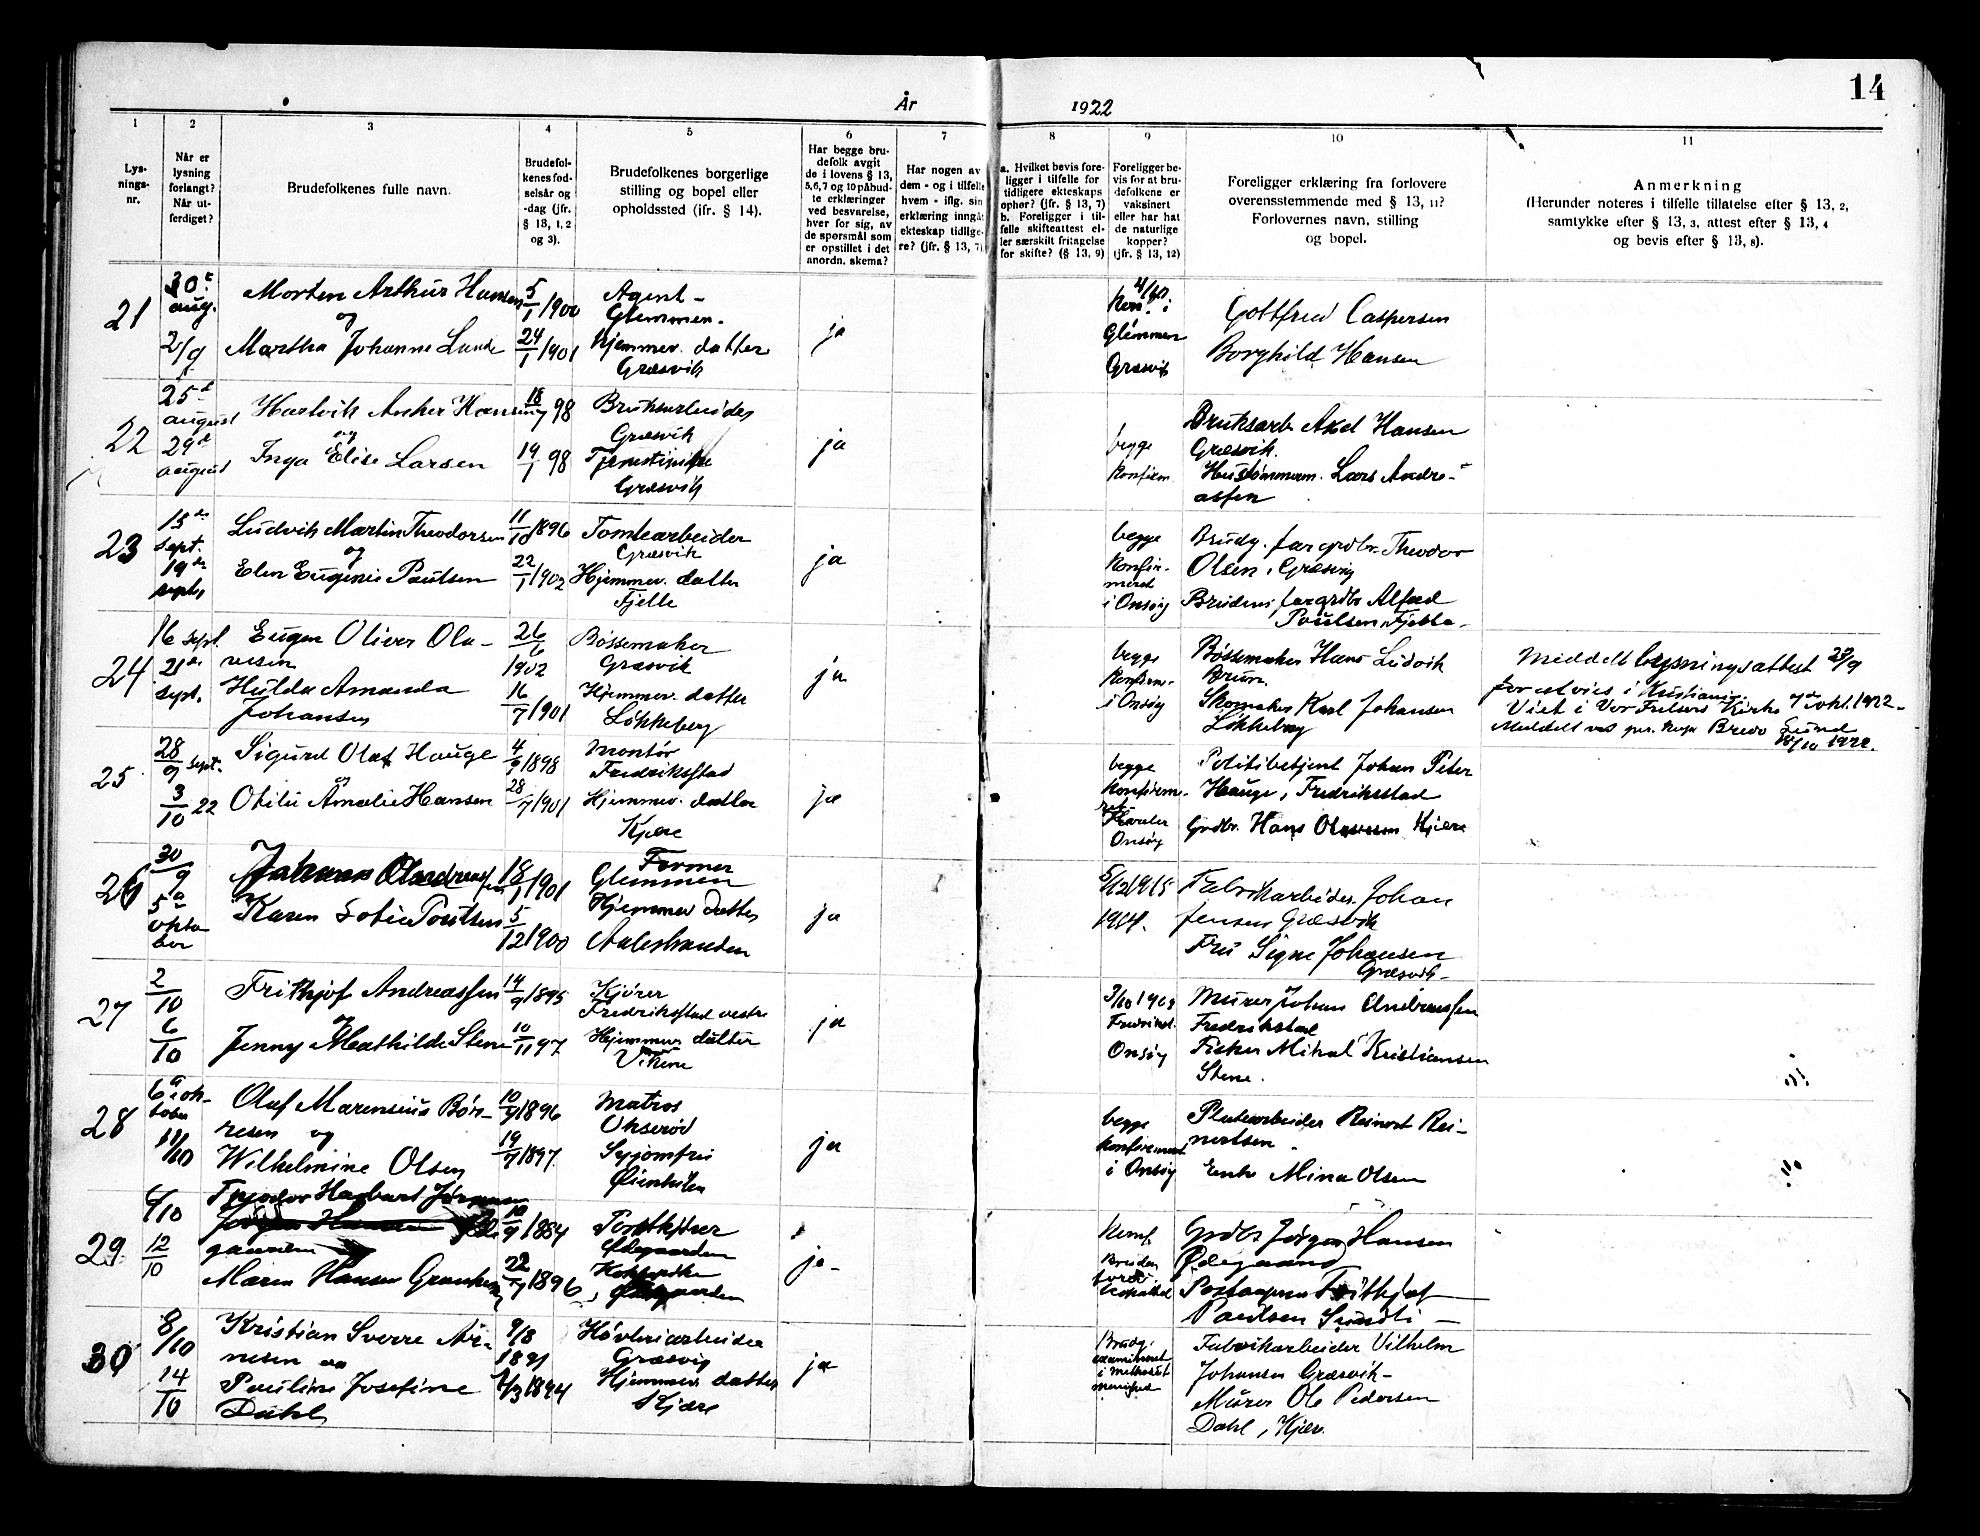 14
År 1922
1 2 3 4 5 6 7 8 9 10 11
Lys-
nings-
nr.
Når er
lysning
forlangt?
Når ut-
ferdiget?
Brudefolkenes fulle navn.
Brudefol-
kenes fød-
selsår og
-dag (jfr.
§ 13, 1, 2
og 3).
Brudefolkenes borgerlige
stilling og bopel eller
opholdssted (ifr. § 14).
Har begge bru-
defolk avgit
de i lovens § 13,
5, 6, 7 og 10 påbud-
te erklæringer
ved besvarelse,
hver for sig, av
de spørsmål som
er opstillet i det
anordn. skema?
Har nogen av
dem - og i tilfelle
hvem - iflg. sin
erklæring inngåt
ekteskap tidlige-
re? (jfr. § 13, 7)
a. Hvilket bevis fore-
ligger i tilfelle for
tidligere ekteskaps
ophør? (jfr. § 13, 7)
b. Foreligger i til-
felle skifteattest el-
ler særskilt fritagelse
for skifte? (§ 13, 9)
Foreligger be-
vis for at bru-
defolkene er
vaksinert
eller har hat
de naturlige
kopper?
(jfr. § 13, 12)
Foreligger erklæring fra forlovere
overensstemmende med § 13, 11?
Forlovernes navn, stilling
og bopel.
Anmerkning
(Herunder noteres i tilfelle tillatelse efter § 13, 2,
samtykke efter § 13, 3, attest efter § 13, 4
og bevis efter § 13, 8).
21
30t
aug.
2/9
Morten Arthur Hansen
og
Martha Johanne Lunde
5/1 1900
24/1 1901
Agent -
Glemmen.
Hjemmev. datter
Græsvik
ja
i
Glemmen
Græsvik
Gottfred Caspersen
Borghild Hansen
22
25d
august
29d
august
Hartvik Anker Hansen
og
Inga Elise Larsen
18/7 98
19/1 98
Bruksarbeider
Græsvik
Græsvik
ja
begge
konfirm.
Bruksarb Axel Hansen
Græsvik.
Hustømmerm. Lars Andre-
assen
23
15de
sept.
19de
septr
Ludvik Martin Theodorsen
og
Elen Eugenie Paulsen
11/10 1896
22/1 1902
Tomtearbeider
Græsvik
Hjemmev. datter
Fjelle
ja
begge
Konfir-
meret
i Onsøy
Brudg. far grdbr. Theodor
Olsen, Græsvig
Brudens far grdbr Alfred
Poulsen, Fjelle.
24
16 sept.
21de
sept.
Eugen Oliver Ola-
vesen
Hulda Amanda
Johansen
26/6
1902
16/7 1901
Bøssemaker
Græsvik
Hjemmev. datter
Løkkeberg
ja
begge
Konfirm.
i Onsøy
Bøssemaker Hans Ludvik
Brun.
Skomaker Karl Johansen
Løkkeberg
Meddelt lysningsattest 23/9
for at vies i Kristiania.
Viet i Vor Frelsers Kirke 7de okt. 1922.
25
28/9 sept.
3/10 22
Sigurd Olaf Hauge
og
Otilie Amalie Hansen
4/9 1898
28/7 1901
Montør
Fredriksstad
Hjemmev. datter
Kjære
ja
begge
Konfirme-
ret
Onsøy
Politibetjent Johan Peter
Hauge, Fredriksstad
Grdbr. Hans Olavesen Kjære
26
30/9
5te
okto
ber
Karen Sofie Poulsen
18/1 1901
5/12 1900
Former
Glemmen
Hjemmev datter
Aalestranden
ja
5/12 1915
1914.
Fabrikarbeider Johan
Jensen Græsvik
Fru Signe Johansen
Græsvik
27
2/10
6/10
Frithjof Andreassen
Jenny Mathilde Stene
14/9 1895
10/11 97
Kjører
Fredriksstad vestre
Hjemmev datter
Vikene
ja
Onsøy
Murer Johan Andreassen
Fredrikstad
Fisker Mikal Kristiansen
Stene.
28
6te ok-
tober
11/10
Olaf Marensius Bør-
resen og
Wilhelmine Olsen
10/9 1896
19/7 1897
Matros
Okserød
Syjomfru
ja
begge
konfirmert
i Onsøy
Platearbeider Reinert Rei-
nertsen.
Enke Mina Olsen
29
6/10
12/10
Thjodor Harbart Jørgensen
Maren Hansen
10/9 1884
22/7 1896
Postkjører
Ødegaarden
ja
Konf.
Grdbr Jørgen Hansen
Ødegaard
Postaapner Frithjof
Paulsen Sundli
30
8/10
14/10
Kristian Sverre Ar-
nesen og
Pauline Josefine
Dahl
9/8
1891
1/3 1894
Høvleriarbeider
Græsvig
Hjemmev. datter
Kjære
ja
Brudg.
Fabrikarbeider Vilhelm
Johansen Græsvik
Murer Ole Pedersen
Dahl, Kjær.